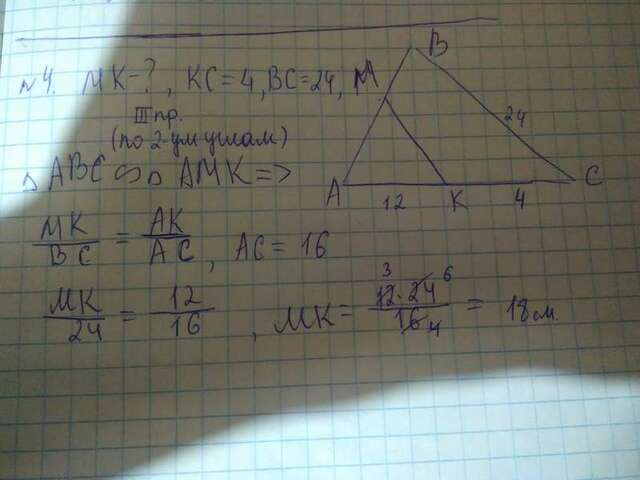 №4. MK-?, KC=4, BC=24,
III пр.
(по 2-ум углам)
△ABC ∽ △AMK =>
MK/BC = AK/AC, AC = 16
MK/24 = 12/16, MK = 12·24/16 = 18 см.
3 6 4
M B
24
A 12 K 4 C